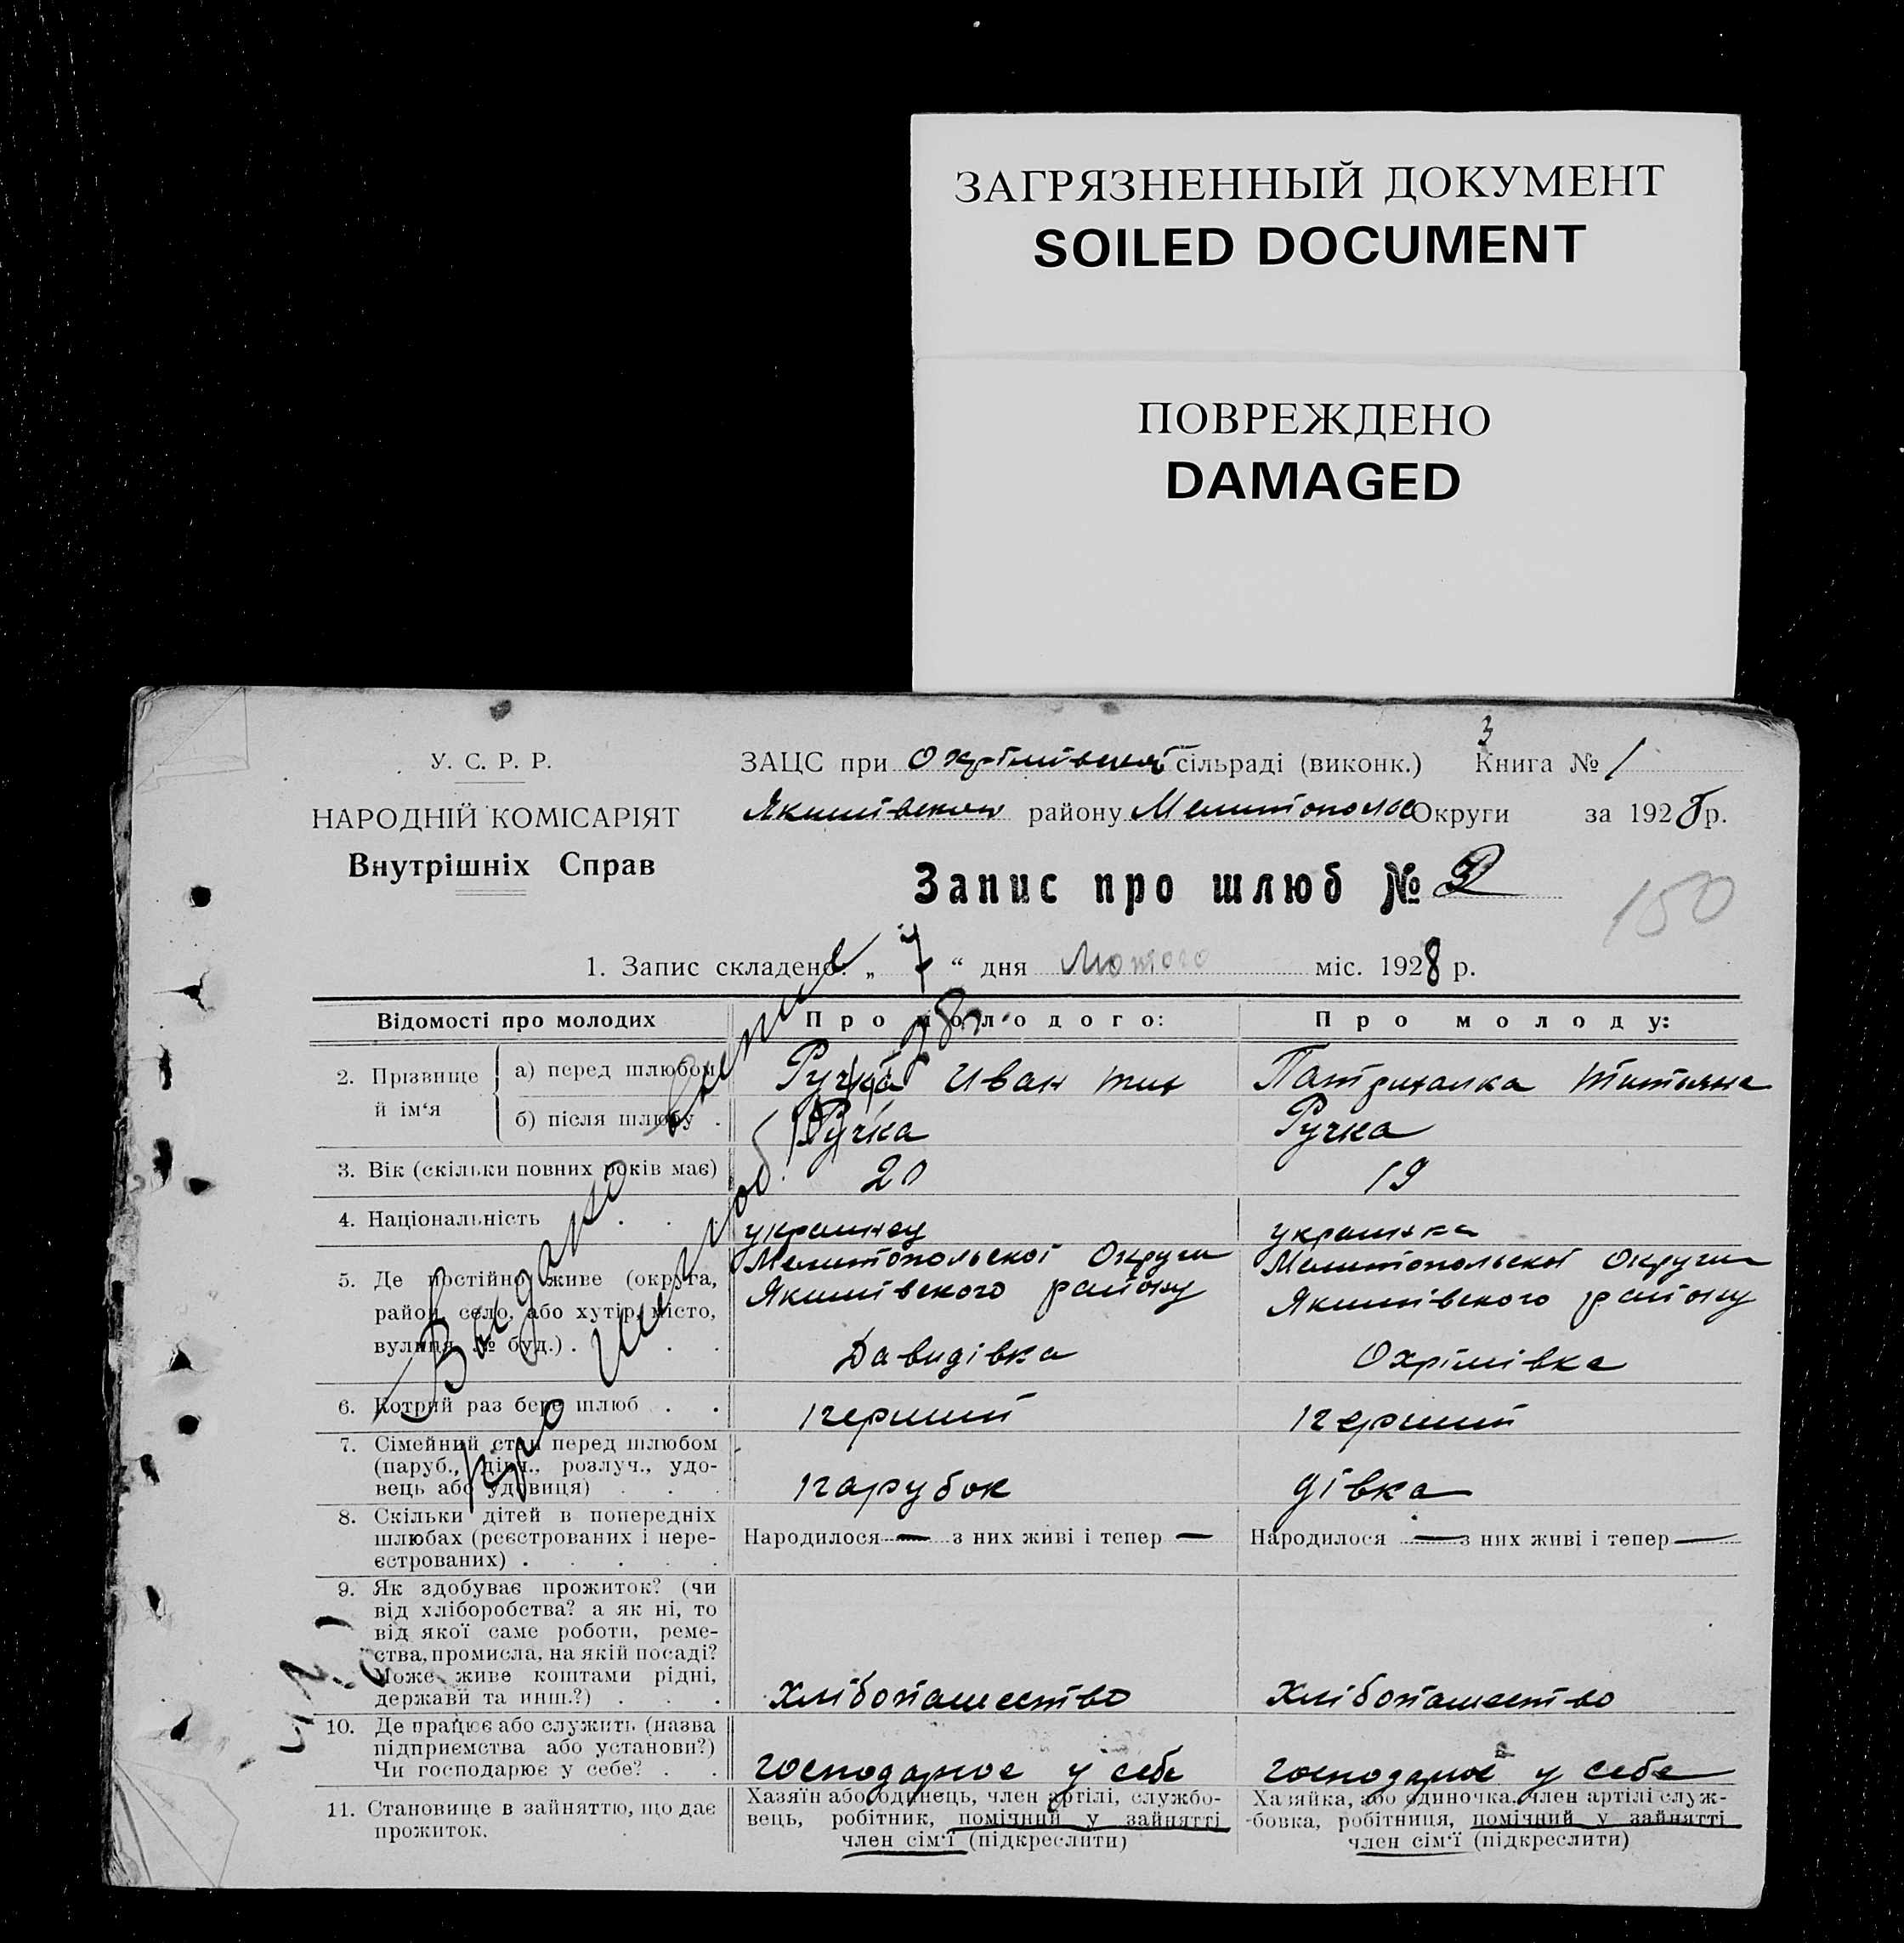 ЗАГРЯЗНЕННЫЙ ДОКУМЕНТ
SOILED DOCUMENT
ПОВРЕЖДЕНО
DAMAGED
3
У. С. Р. Р.
НАРОДНІЙ КОМІСАРІЯТ
Внутрішніх Справ
ЗАЦС при Охрімівській сільраді (виконк.) Книга № 1
району Округи за 1928 р.
Запис про шлюб № 2
150
1. Запис складено: „ 7 “ дня Лютого міс. 1928 р.
Відомості про молодих Про молодого: Про молоду:
2. Прізвище й ім‘я а) перед шлюбом Ручка Иван Патрихалка Титьяна
б) після шлюбу . Ручка Ручка
3. Вік (скільки повних років має) 20 19
4. Національність . . . украинец украинка
5. Де постійно живе (округа, Мелитопольскоі Округи Мелитопольскоі Округи
район, село, або хутір, місто, Якимівского району Якимівского району
вулиця, № буд.) . . . Давидівка Охрімівка
6. Котрий раз бере шлюб . . перший перший
7. Сімейний стан перед шлюбом
(паруб., дівч., розлуч., удо-
вець або удовиця) . . . парубок дівка
8. Скільки дітей в попередніх
шлюбах (реєстрованих і нере- Народилося — з них живі і тепер — Народилося — з них живі і тепер —
єстрованих) . . . . .
9. Як здобуває прожиток? (чи
від хліборобства? а як ні, то
від якої саме роботи, реме-
ства, промисла, на якій посаді?
Може живе коштами рідні,
держави та инш.?) . . . Хлібопашество Хлібопашество
10. Де працює або служить (назва
підприємства або установи?)
Чи господарює у себе? . . господарює у себе господарює у себе
11. Становище в зайняттю, що дає
прожиток.
Хазяїн або одинець, член артілі, службо-
вець, робітник, помічний у зайнятті
член сім‘ї (підкреслити)
Хазяйка, або одиночка, член артілі служ-
-бовка, робітниця, помічний у зайнятті
член сім‘ї (підкреслити)
Видано
про шлюб